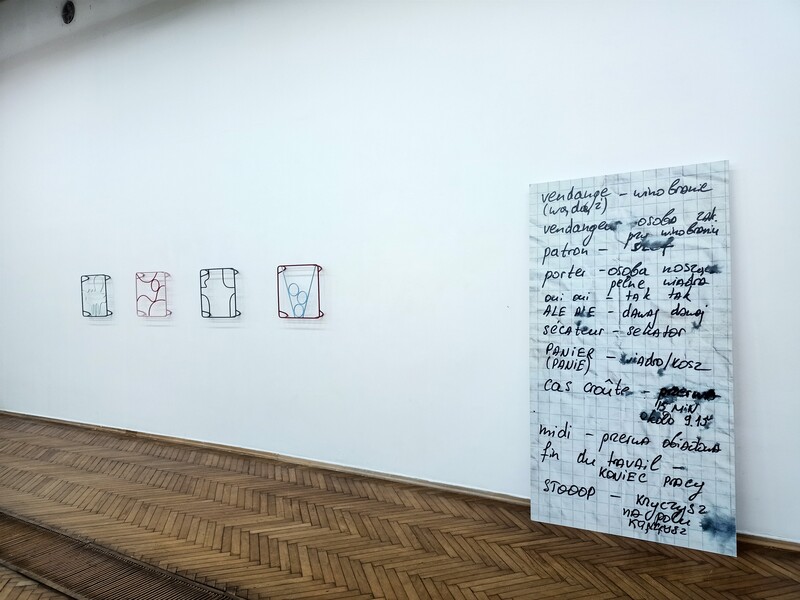 vendange – winobranie
(wądąż)
vendangeur osoba zat.
przy winobraniu
patron – szef
porter – osoba nosząca
pełne wiadra
oui oui – tak tak
ALE ALE – dawaj dawaj
sécateur – sekator
PANIER – wiadro/kosz
(PANIE)
cas croûte – przerwa
15 MIN
około 9.15
midi – przerwa obiadowa
fin du travail –
KONIEC PRACY
STOOOP – krzyczysz
na polu